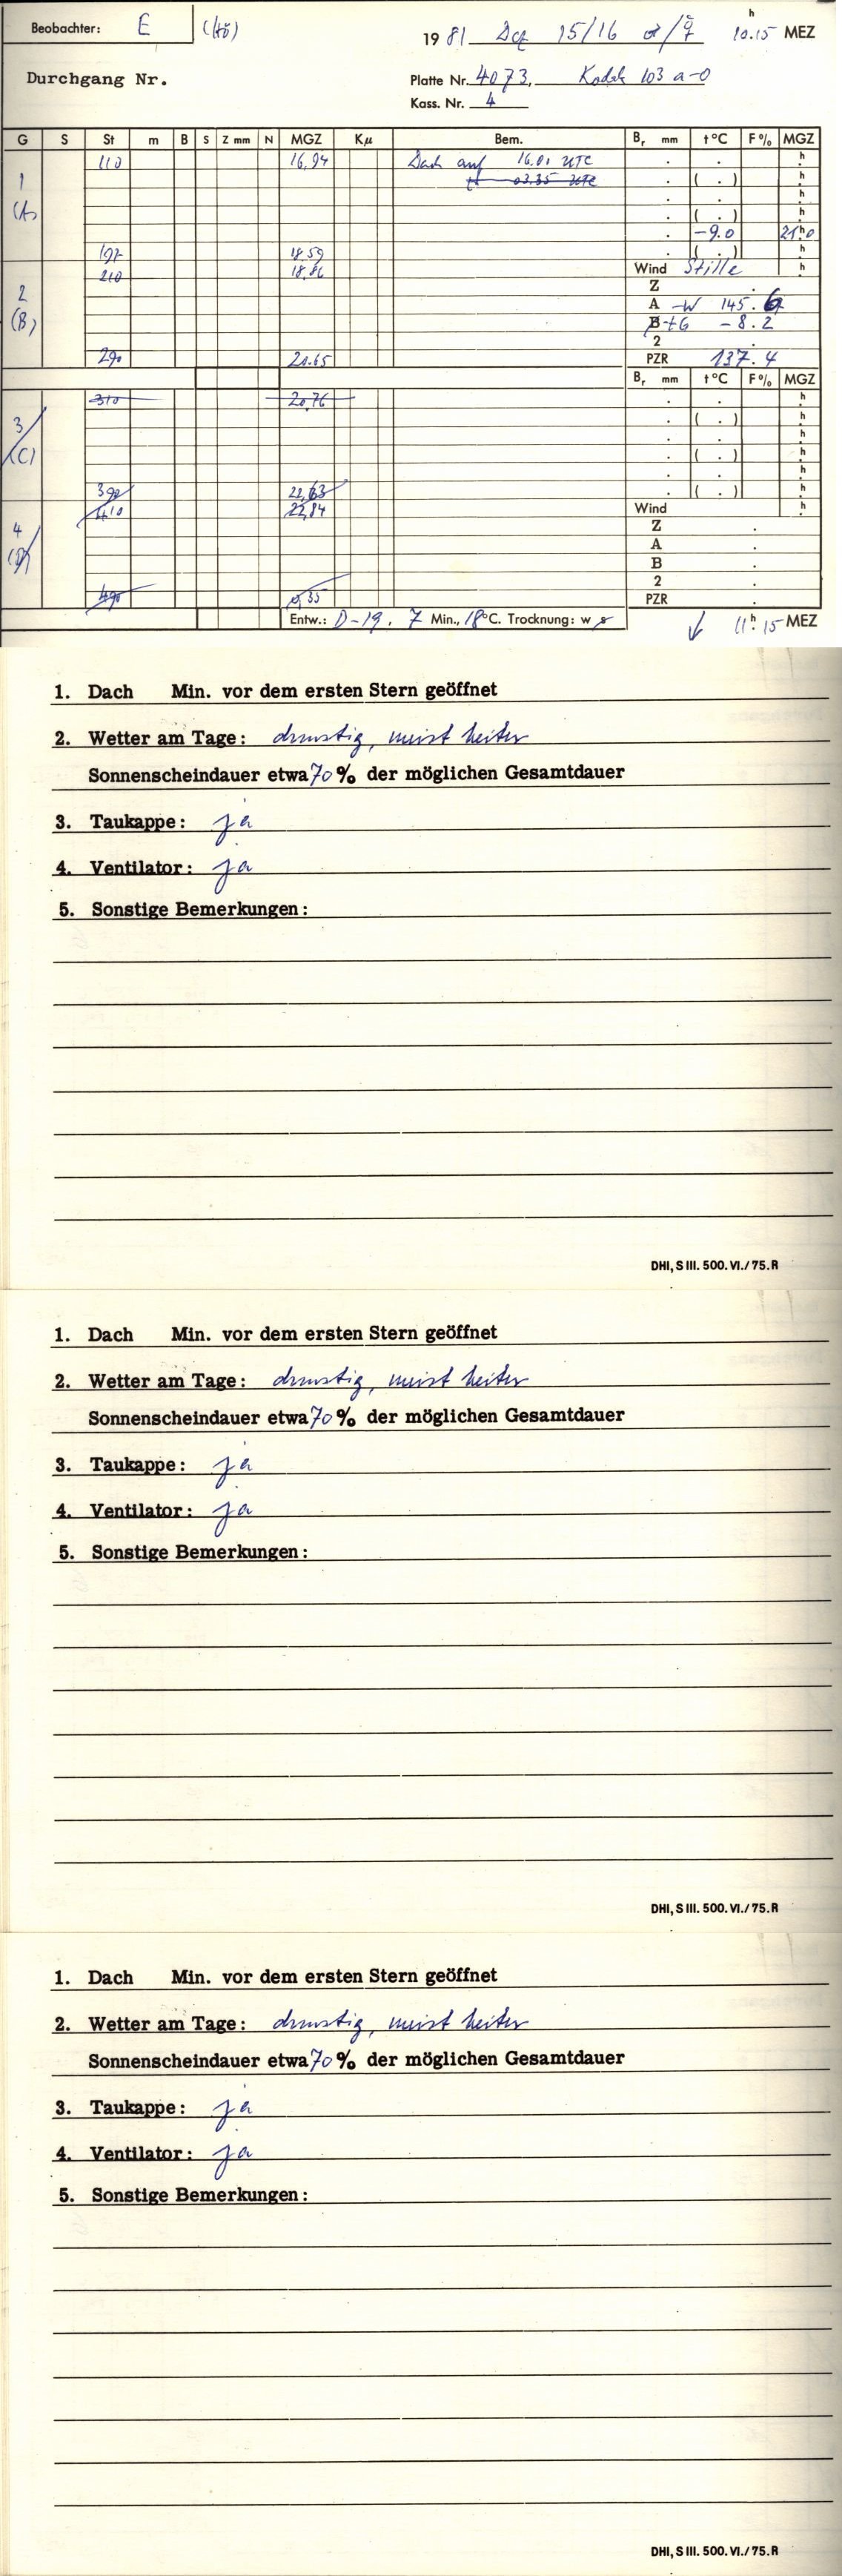 Beobachter: E (Hö) 1981 Dez 15/16 ♂/☿ 10.15 h MEZ
Durchgang Nr. Platte Nr. 4073, Kodak 103 a-O
Kass. Nr. 4
G S St m B S Z mm N MGZ Kμ Bem. Br mm t°C F% MGZ
110 16,94 Dach auf 16.01 UTC . . h
1 03.35 UTC . ( . ) h
(A) . . h
. ( . ) h
. -9.0 21h0
190 18,59 . ( . ) h
210 18,86 Wind Stille h
2 Z .
(B) A -W 145.6
B +G -8.2
2 .
290 20.65 PZR 137.4
Br mm t°C F% MGZ
310 20,76 . . h
3 . ( . ) h
(C) . . h
. ( . ) h
. . h
390 22,63 . ( . ) h
410 22,84 Wind h
4 Z .
(D) A .
B .
2 .
490 0,35 PZR .
Entw.: D-19. 7 Min., 18°C. Trocknung: w s 11h 15 MEZ
1. Dach Min. vor dem ersten Stern geöffnet
2. Wetter am Tage: dunstig, meist heiter
Sonnenscheindauer etwa 70% der möglichen Gesamtdauer
3. Taukappe: ja
4. Ventilator: ja
5. Sonstige Bemerkungen:
DHI, S III. 500. VI./75. R
1. Dach Min. vor dem ersten Stern geöffnet
2. Wetter am Tage: dunstig, meist heiter
Sonnenscheindauer etwa 70% der möglichen Gesamtdauer
3. Taukappe: ja
4. Ventilator: ja
5. Sonstige Bemerkungen:
DHI, S III. 500. VI./75. R
1. Dach Min. vor dem ersten Stern geöffnet
2. Wetter am Tage: dunstig, meist heiter
Sonnenscheindauer etwa 70% der möglichen Gesamtdauer
3. Taukappe: ja
4. Ventilator: ja
5. Sonstige Bemerkungen:
DHI, S III. 500. VI./75. R